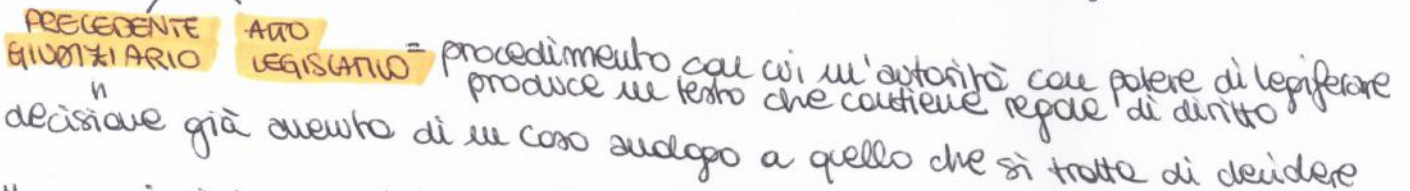 PRECEDENTE ATTO
GIUDIZIARIO LEGISLATIVO = procedimento con cui un'autorità con potere di legiferare
produce un testo che contiene regole di diritto
"
decisione già avenuta di un caso analogo a quello che si tratta di decidere